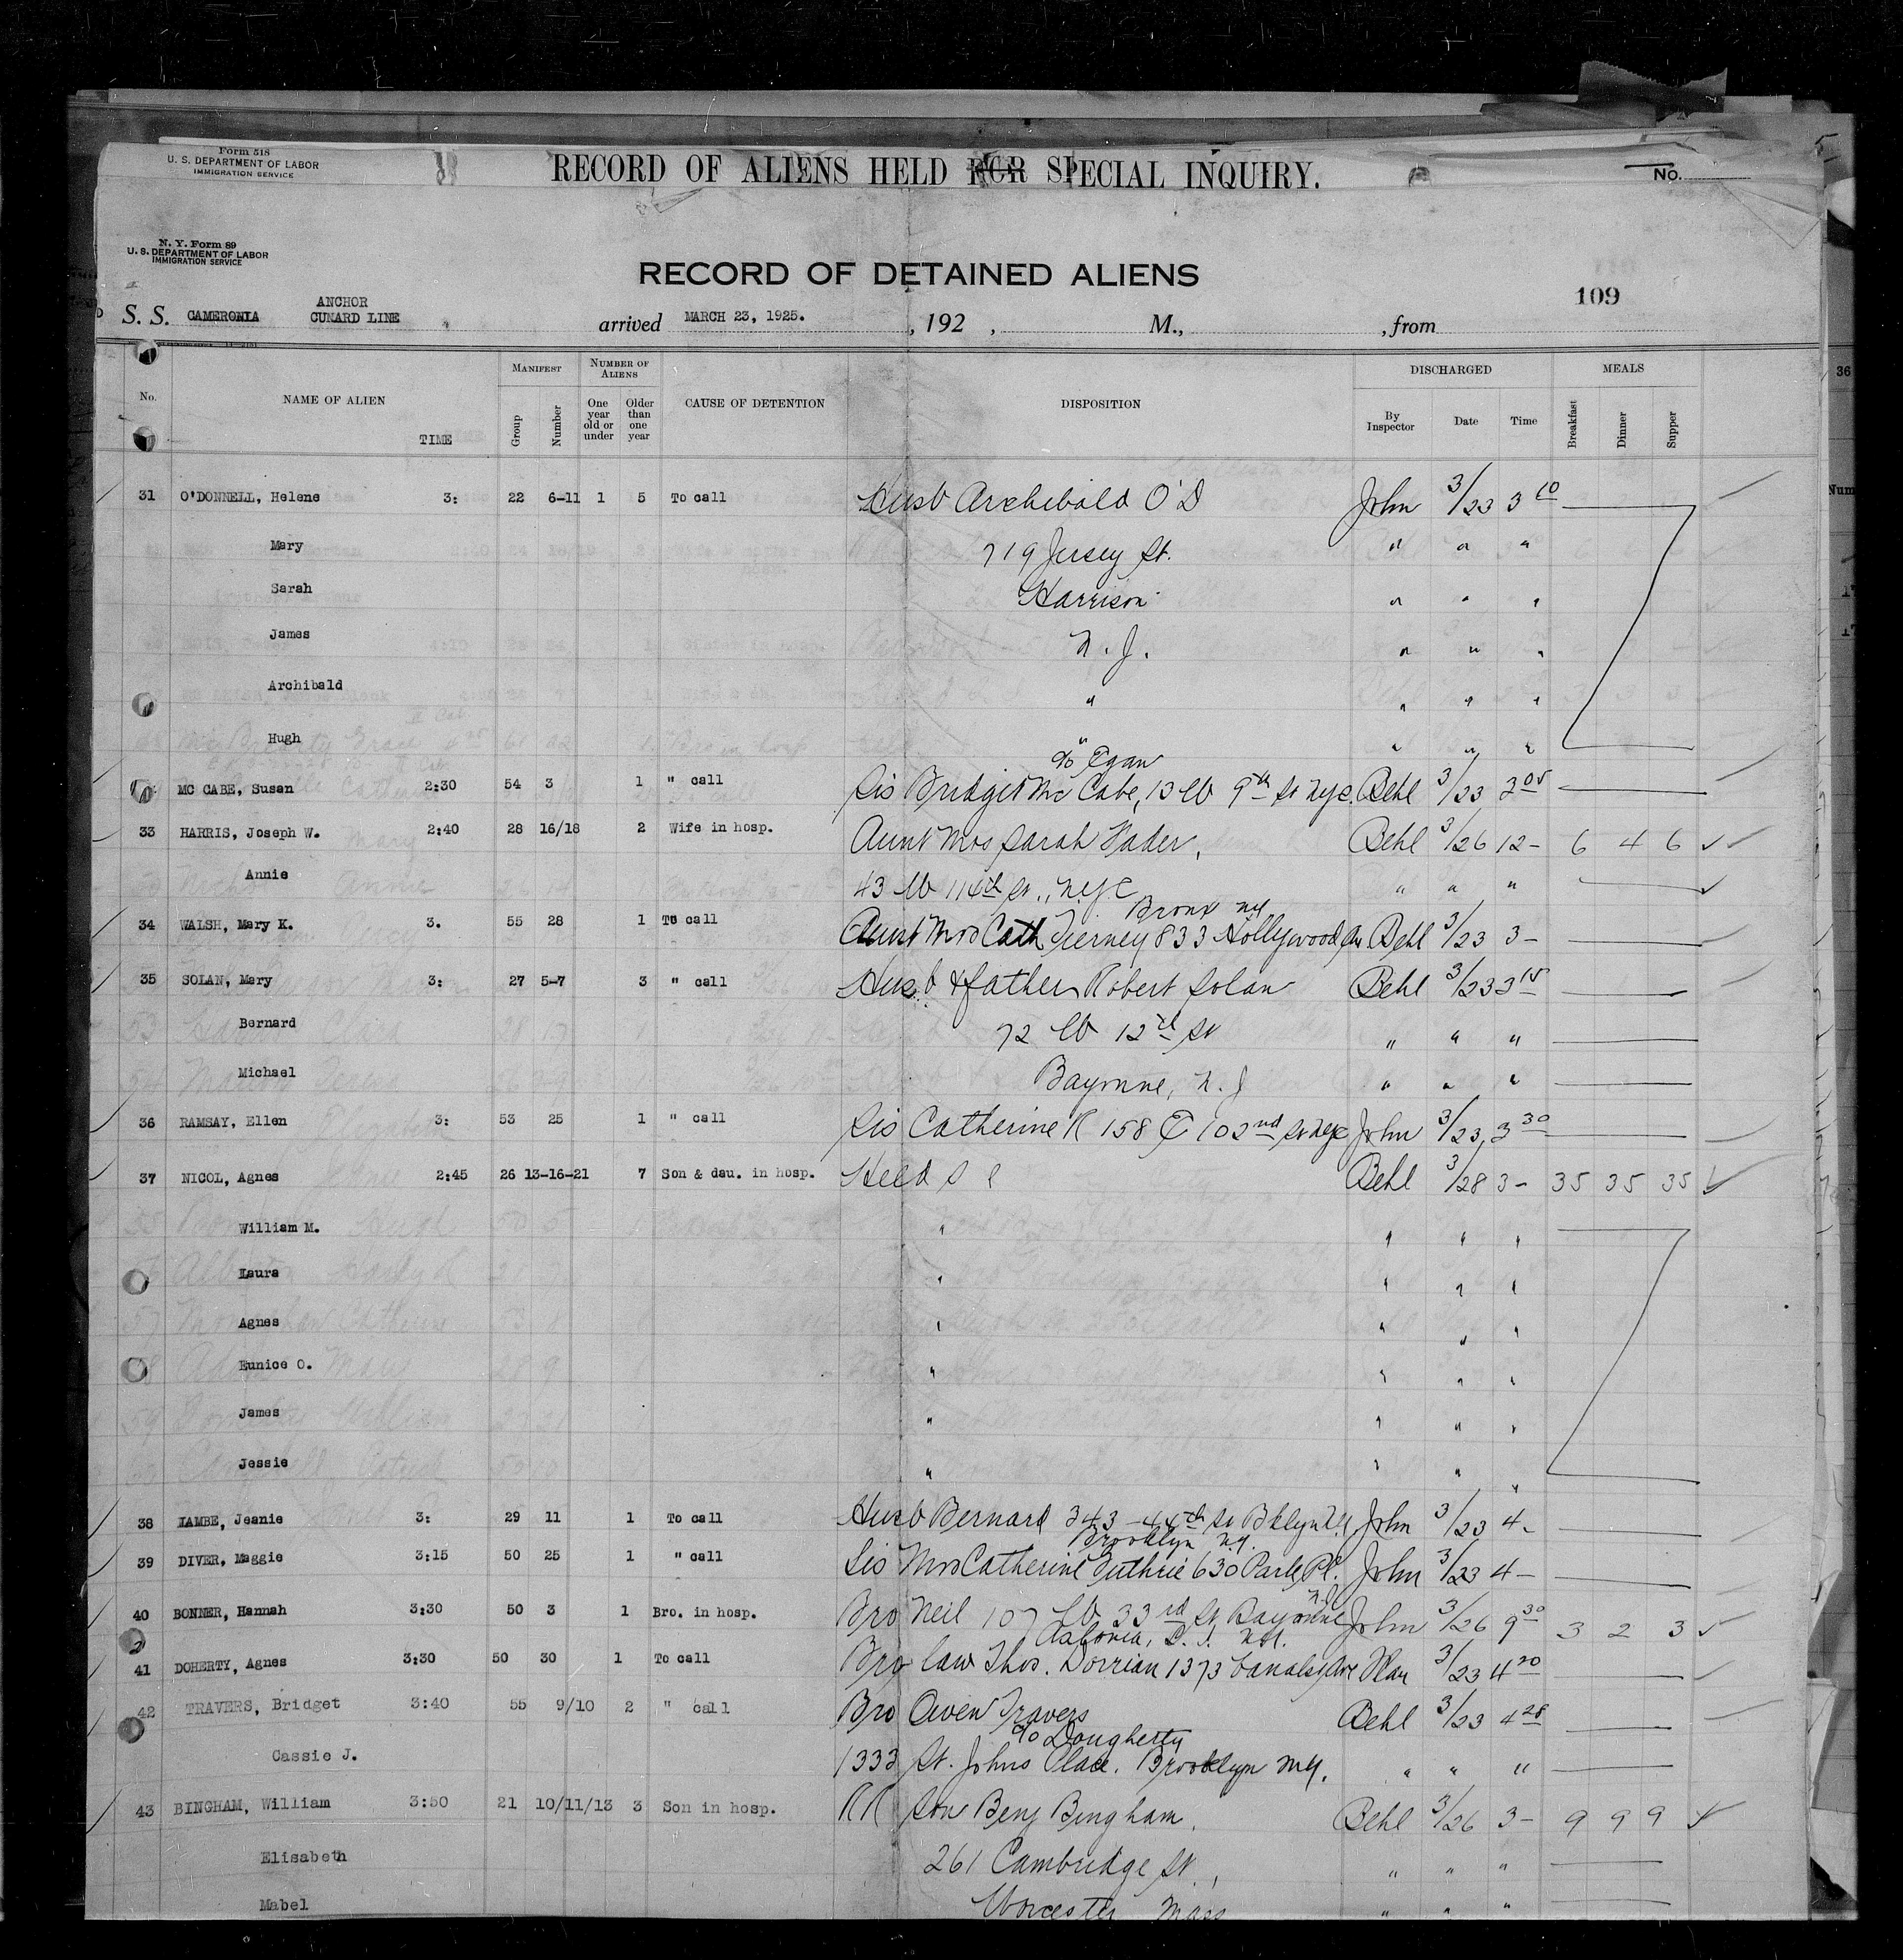 Form 518
U. S. DEPARTMENT OF LABOR
IMMIGRATION SERVICE
RECORD OF ALIENS HELD FOR SPECIAL INQUIRY.
No.
N. Y. Form 89
U. S. DEPARTMENT OF LABOR
IMMIGRATION SERVICE
RECORD OF DETAINED ALIENS
109
ANCHOR
S. S. CAMERONIA CUNARD LINE arrived MARCH 23, 1925. , 192 , M., , from
No. NAME OF ALIEN TIME MANIFEST Group Number NUMBER OF ALIENS One year old or under Older than one year CAUSE OF DETENTION DISPOSITION DISCHARGED By Inspector Date Time MEALS Breakfast Dinner Supper
36
Num
31 O'DONNELL, Helene 3: 22 6-11 1 5 To call Husb Archibald O'D John 3/23 3 10
Mary 719 Jersey St. " " "
Sarah Harrison " " "
James N. J. " " "
Archibald " " " "
Hugh " " " "
c/o Egan
MC CABE, Susan 2:30 54 3 1 " call Sis Bridget Mc Cabe, 13 W 9th St NYC. Behl 3/23 3 05
33 HARRIS, Joseph W. 2:40 28 16/18 2 Wife in hosp. Aunt Mrs Sarah Nader, Behl 3/26 12- 6 4 6
Annie 43 W 114th St., NYC " " "
Bronx NY
34 WALSH, Mary K. 3. 55 28 1 To call Aunt Mrs Cath Tierney 833 Hollywood Av Behl 3/23 3-
35 SOLAN, Mary 3: 27 5-7 3 " call Husb & father Robert Solan Behl 3/23 3 15
Bernard 72 W 12th St " " "
Michael Bayonne, N. J " " "
36 RAMSAY, Ellen 3: 53 25 1 " call Sis Catherine R 158 E 102nd St NYC John 3/23, 3 30
37 NICOL, Agnes 2:45 26 13-16-21 7 Son & dau. in hosp. Held S I Behl 3/28 3- 35 35 35
William M. " " " "
Laura " " " "
Agnes " " " "
Eunice O. " " " "
James " " " "
Jessie " " " "
38 LAMBE, Jeanie 3: 29 11 1 To call Husb Bernard 343 - 44th St Bklyn NY John 3/23 4-
Brooklyn NY.
39 DIVER, Maggie 3:15 50 25 1 " call Sis Mrs Catherine Guthrie 630 Park Pl. John 3/23 4-
N.J
40 BONNER, Hannah 3:30 50 3 1 Bro. in hosp. Bro Neil 107 W. 33rd St Bayonne John 3/26 9 30 3 2 3
41 DOHERTY, Agnes 3:30 50 30 1 To call Bro law Thos. Dorrian 1373 Ave 3/23 4 20
42 TRAVERS, Bridget 3:40 55 9/10 2 " call Bro Owen Travers Behl 3/23 4 28
c/o Dougherty
Cassie J. 1333 St. Johns Place. Brooklyn NY. " " "
43 BINGHAM, William 3:50 21 10/11/13 3 Son in hosp. RR Son Benj Bingham. Behl 3/26 3- 9 9 9
Elisabeth 261 Cambridge St., " " "
Mabel Worcester Mass " " "